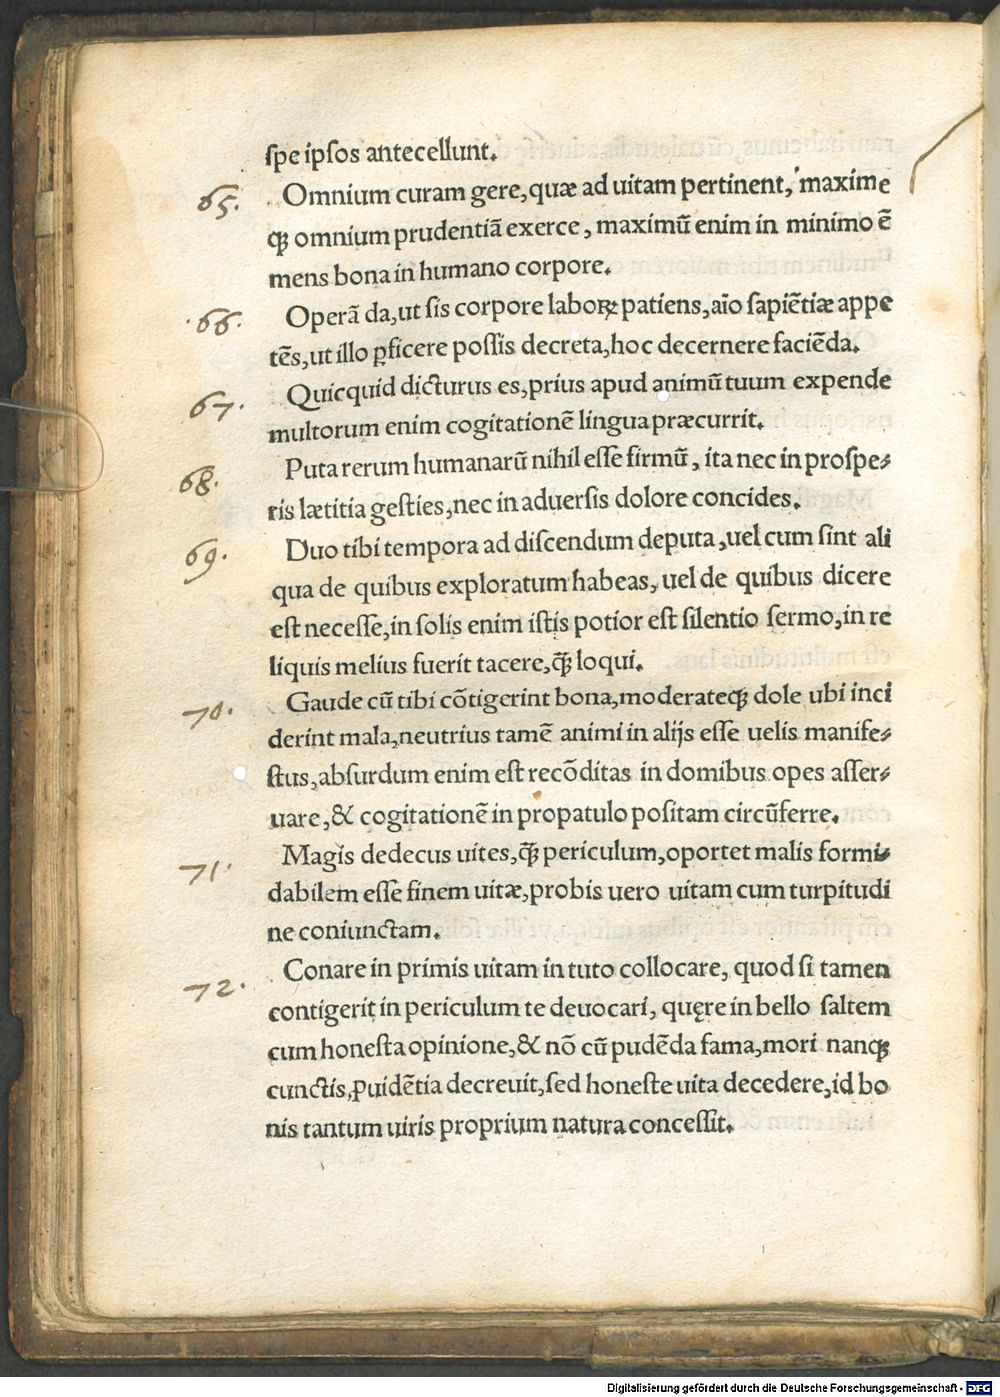 spe ipsos antecellunt.
65. Omnium curam gere, quæ ad uitam pertinent, maxime
qꝫ omnium prudentiã exerce, maximũ enim in minimo ẽ
mens bona in humano corpore.
66. Operã da, ut sis corpore laboꝝ patiens, aĩo sapiẽtiæ appe
tẽs, ut illo ꝑficere possis decreta, hoc decernere faciẽda.
67. Quicquid dicturus es, prius apud animũ tuum expende
multorum enim cogitationẽ lingua præcurrit.
68. Puta rerum humanarũ nihil esse firmũ, ita nec in prospe-
ris lætitia gesties, nec in aduersis dolore concides.
69. Duo tibi tempora ad discendum deputa, uel cum sint ali
qua de quibus exploratum habeas, uel de quibus dicere
est necesse, in solis enim istis potior est silentio sermo, in re
liquis melius fuerit tacere, q̃ꝫ loqui.
70. Gaude cũ tibi cõtigerint bona, moderateqꝫ dole ubi inci
derint mala, neutrius tamẽ animi in alijs esse uelis manife-
stus, absurdum enim est recõditas in domibus opes asser-
uare, & cogitationẽ in propatulo positam circũferre.
71. Magis dedecus uites, q̃ꝫ periculum, oportet malis formi-
dabilem esse finem uitæ, probis uero uitam cum turpitudi
ne coniunctam.
72. Conare in primis uitam in tuto collocare, quod si tamen
contigerit in periculum te deuocari, quęre in bello saltem
cum honesta opinione, & nõ cũ pudẽda fama, mori nanqꝫ
cunctis, ꝓuidẽtia decreuit, sed honeste uita decedere, id bo
nis tantum uiris proprium natura concessit.
Digitalisierung gefördert durch die Deutsche Forschungsgemeinschaft - DFG